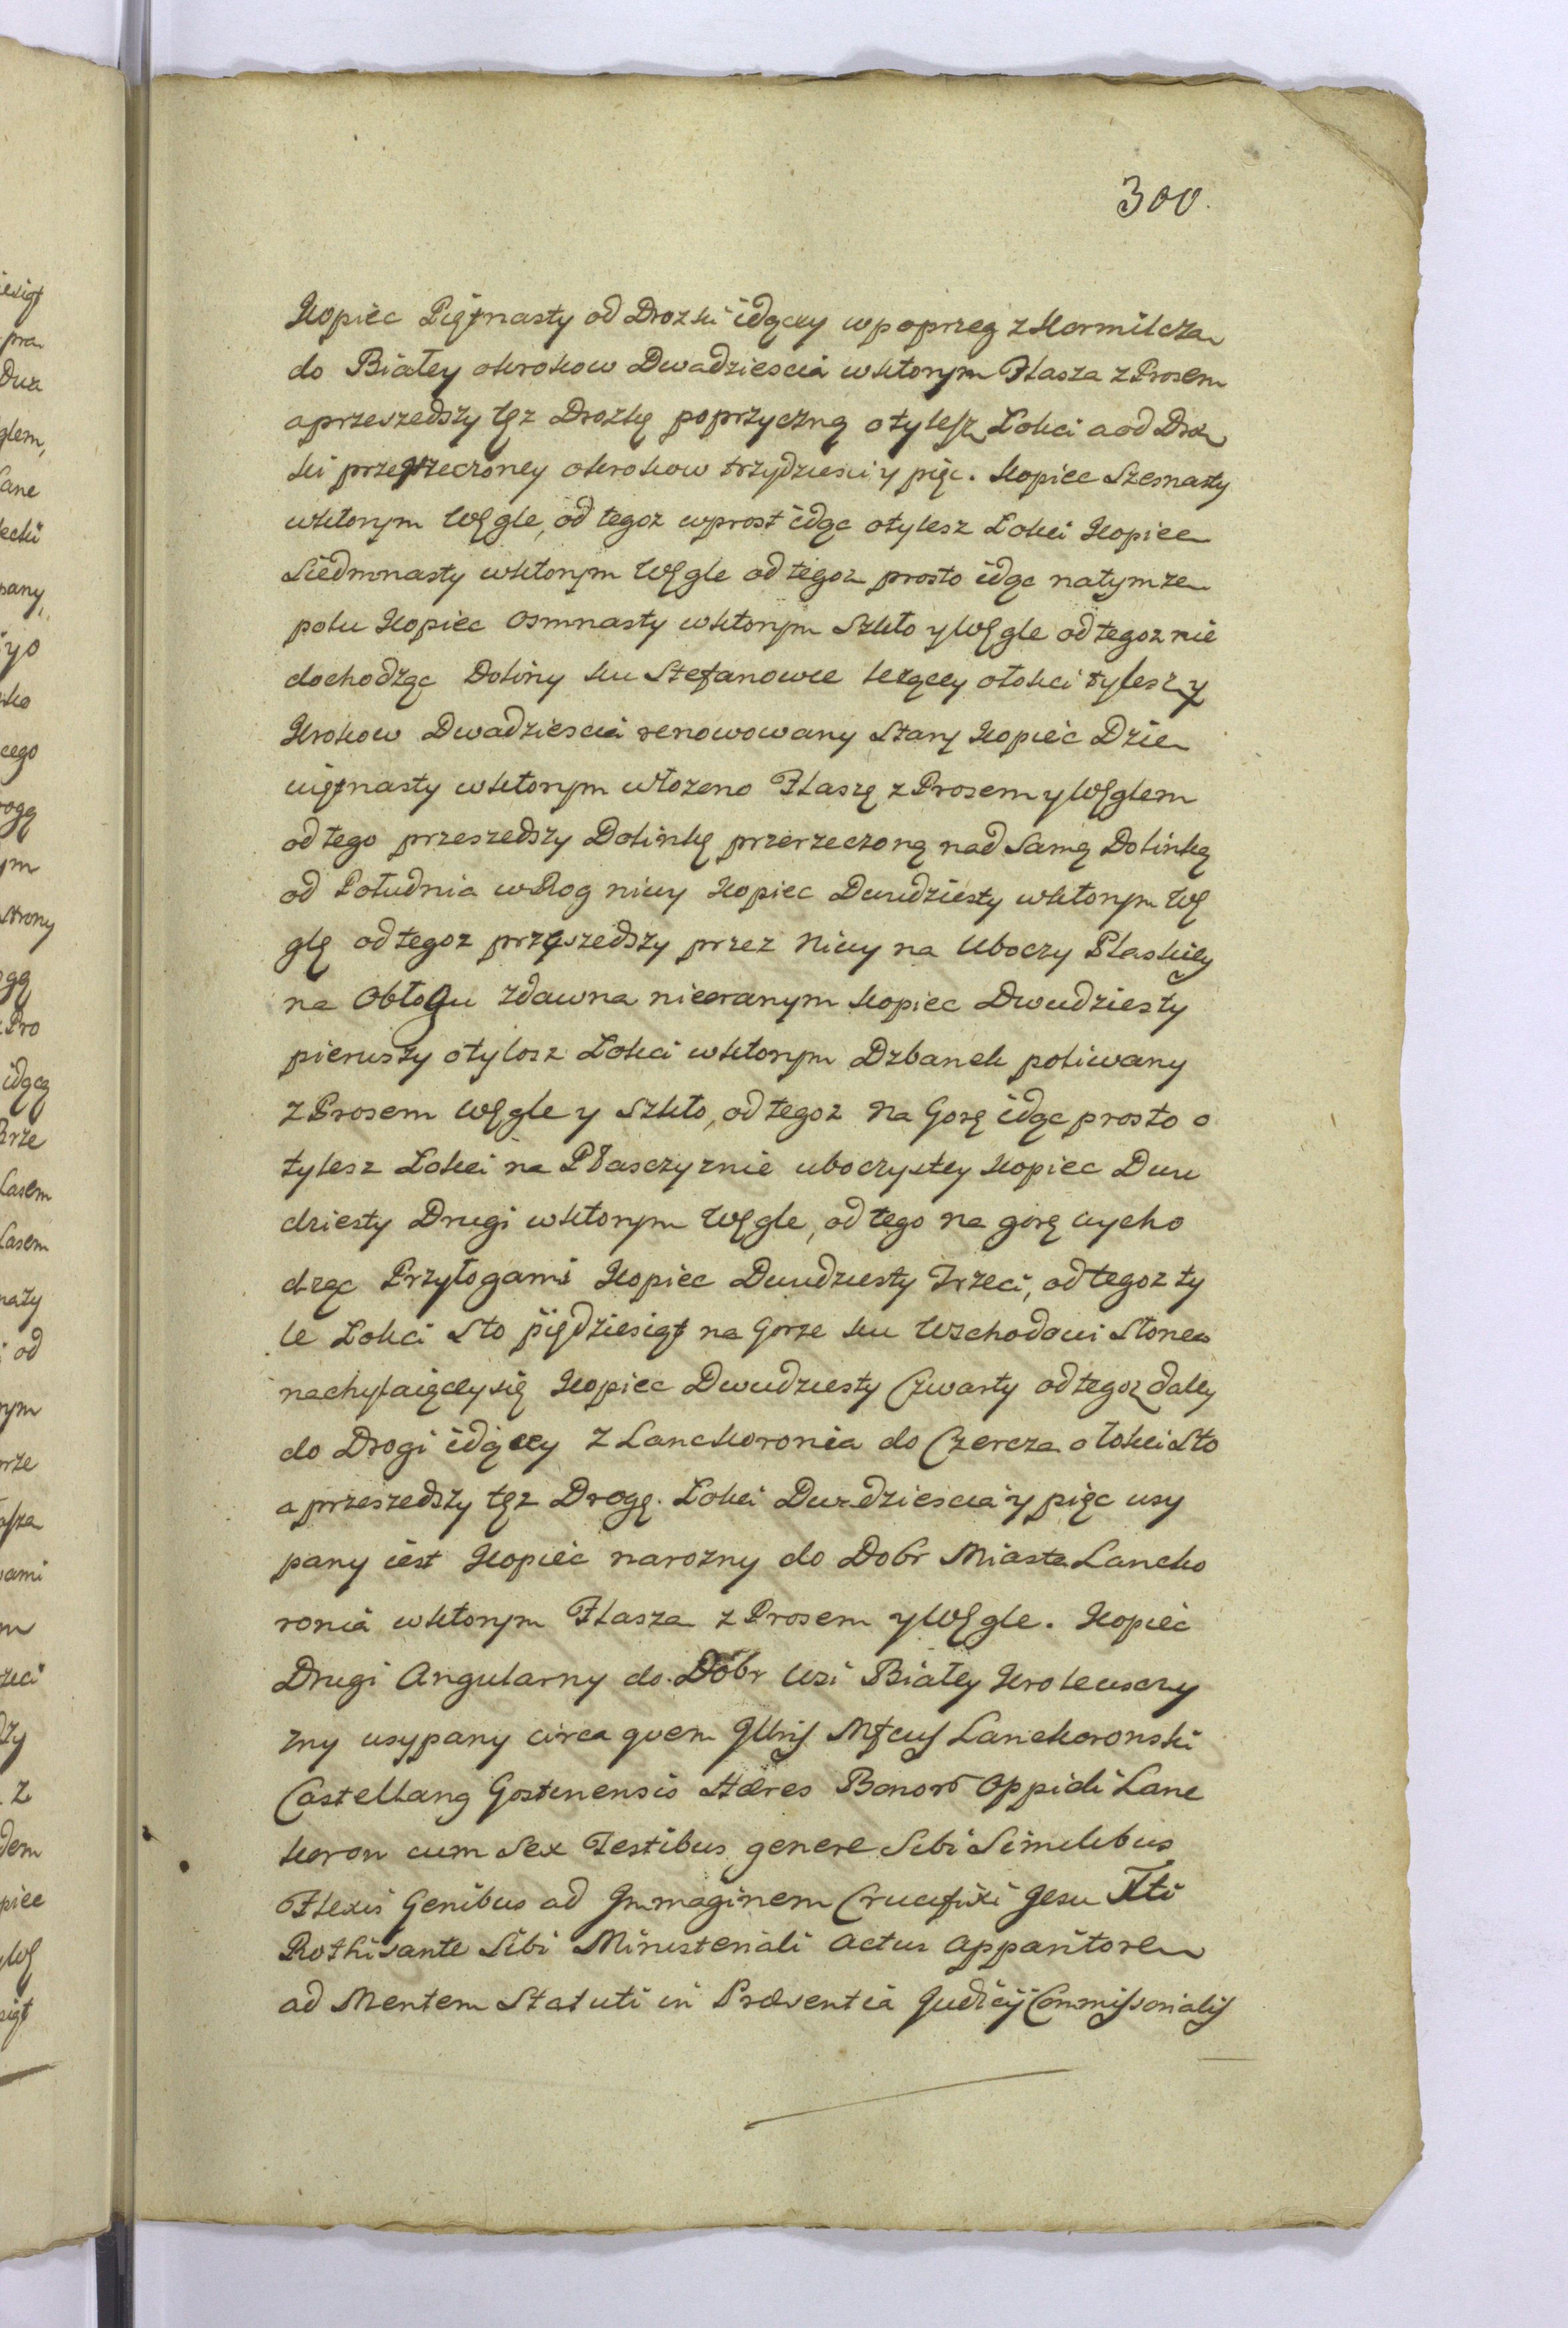 300.
Kopiec Piętnasty od Drozki idącey wpoprzeg z Karmilcza
do Białey okrokow Dwadziescia wktorym Flasza z Prosem
aprzeszedszy tęz Drozkę poprzyczną otylesz Łokci a od Dro
ki przerzeczoney okrokow trzydziesci y pięc. Kopiec Szesnasty
wktorym Węgle, od tegoz wprost idąc otylesz Łokci Kopiec
Siedmnasty wktorym Węgle od tegoz prosto idąc natymze
polu Kopiec Osmnasty wktorym Szkło y Węgle od tegoz nie
dochodząc Doliny ku Stefanowce lezącey ołokci tylesz y
Krokow Dwadziescia renowowany Stary Kopiec Dzie
więtnasty wktorym włozono Flaszę z Prosem y Węglem
od tego przeszedszy Dolinkę przerzeczoną nad Samą Dolinką
od Południa w Rog niwy Kopiec Dwudziesty wktorym Wę
glę od tegoz przeszedszy przez Niwy na Uboczy Płaskiey
na Obłogu zdawna nieoranym Kopiec Dwudziesty
pierwszy otylosz Łokci wktorym Dzbanek poliwany
z Prosem Węgle y Szkło, od tegoz na Gorę idąc prosto o
tylesz Łokci na Płasczyznie uboczystey Kopiec Dwu
dziesty Drugi wktorym Węgle, od tego na gorę wycho
dząc Przyłogami Kopiec Dwudziesty Trzeci, od tegoz ty
le Łokci Sto piędziesiąt na Gorze ku Wschodowi Słonca
nachylaiącey się Kopiec Dwudziesty Czwarty od tegoz daley
do Drogi idącey z Lanckoronia do Czercza ołokci Sto
a przeszedszy tęz Drogę. Łokci Dwadziescia y pięc usy
pany iest Kopiec narozny do Dobr Miasta Lancko
ronia wktorym Flasza z Prosem y Węgle. Kopiec
Drugi Angularny do Dobr Wsi Białey Krolewsczy
zny usypany circa quem Illris Mfcus Lanckoronski
Castellang Gostinensis Hæres Bonorõ Oppidi Lanc
koron cum Sex Testibus genere Sibi Similibus
Flexis Genibus ad Immaginem Crucifixi Jesu Xti
Rothisante Sibi Ministeriali Actus Apparitore
ad Mentem Statuti in Præsentia Judicij Commissorialis